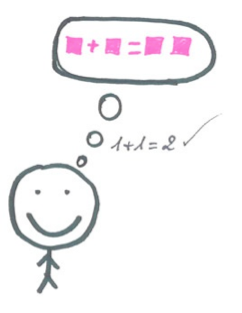 ■ + ■ = ■ ■
1+1=2 ✓